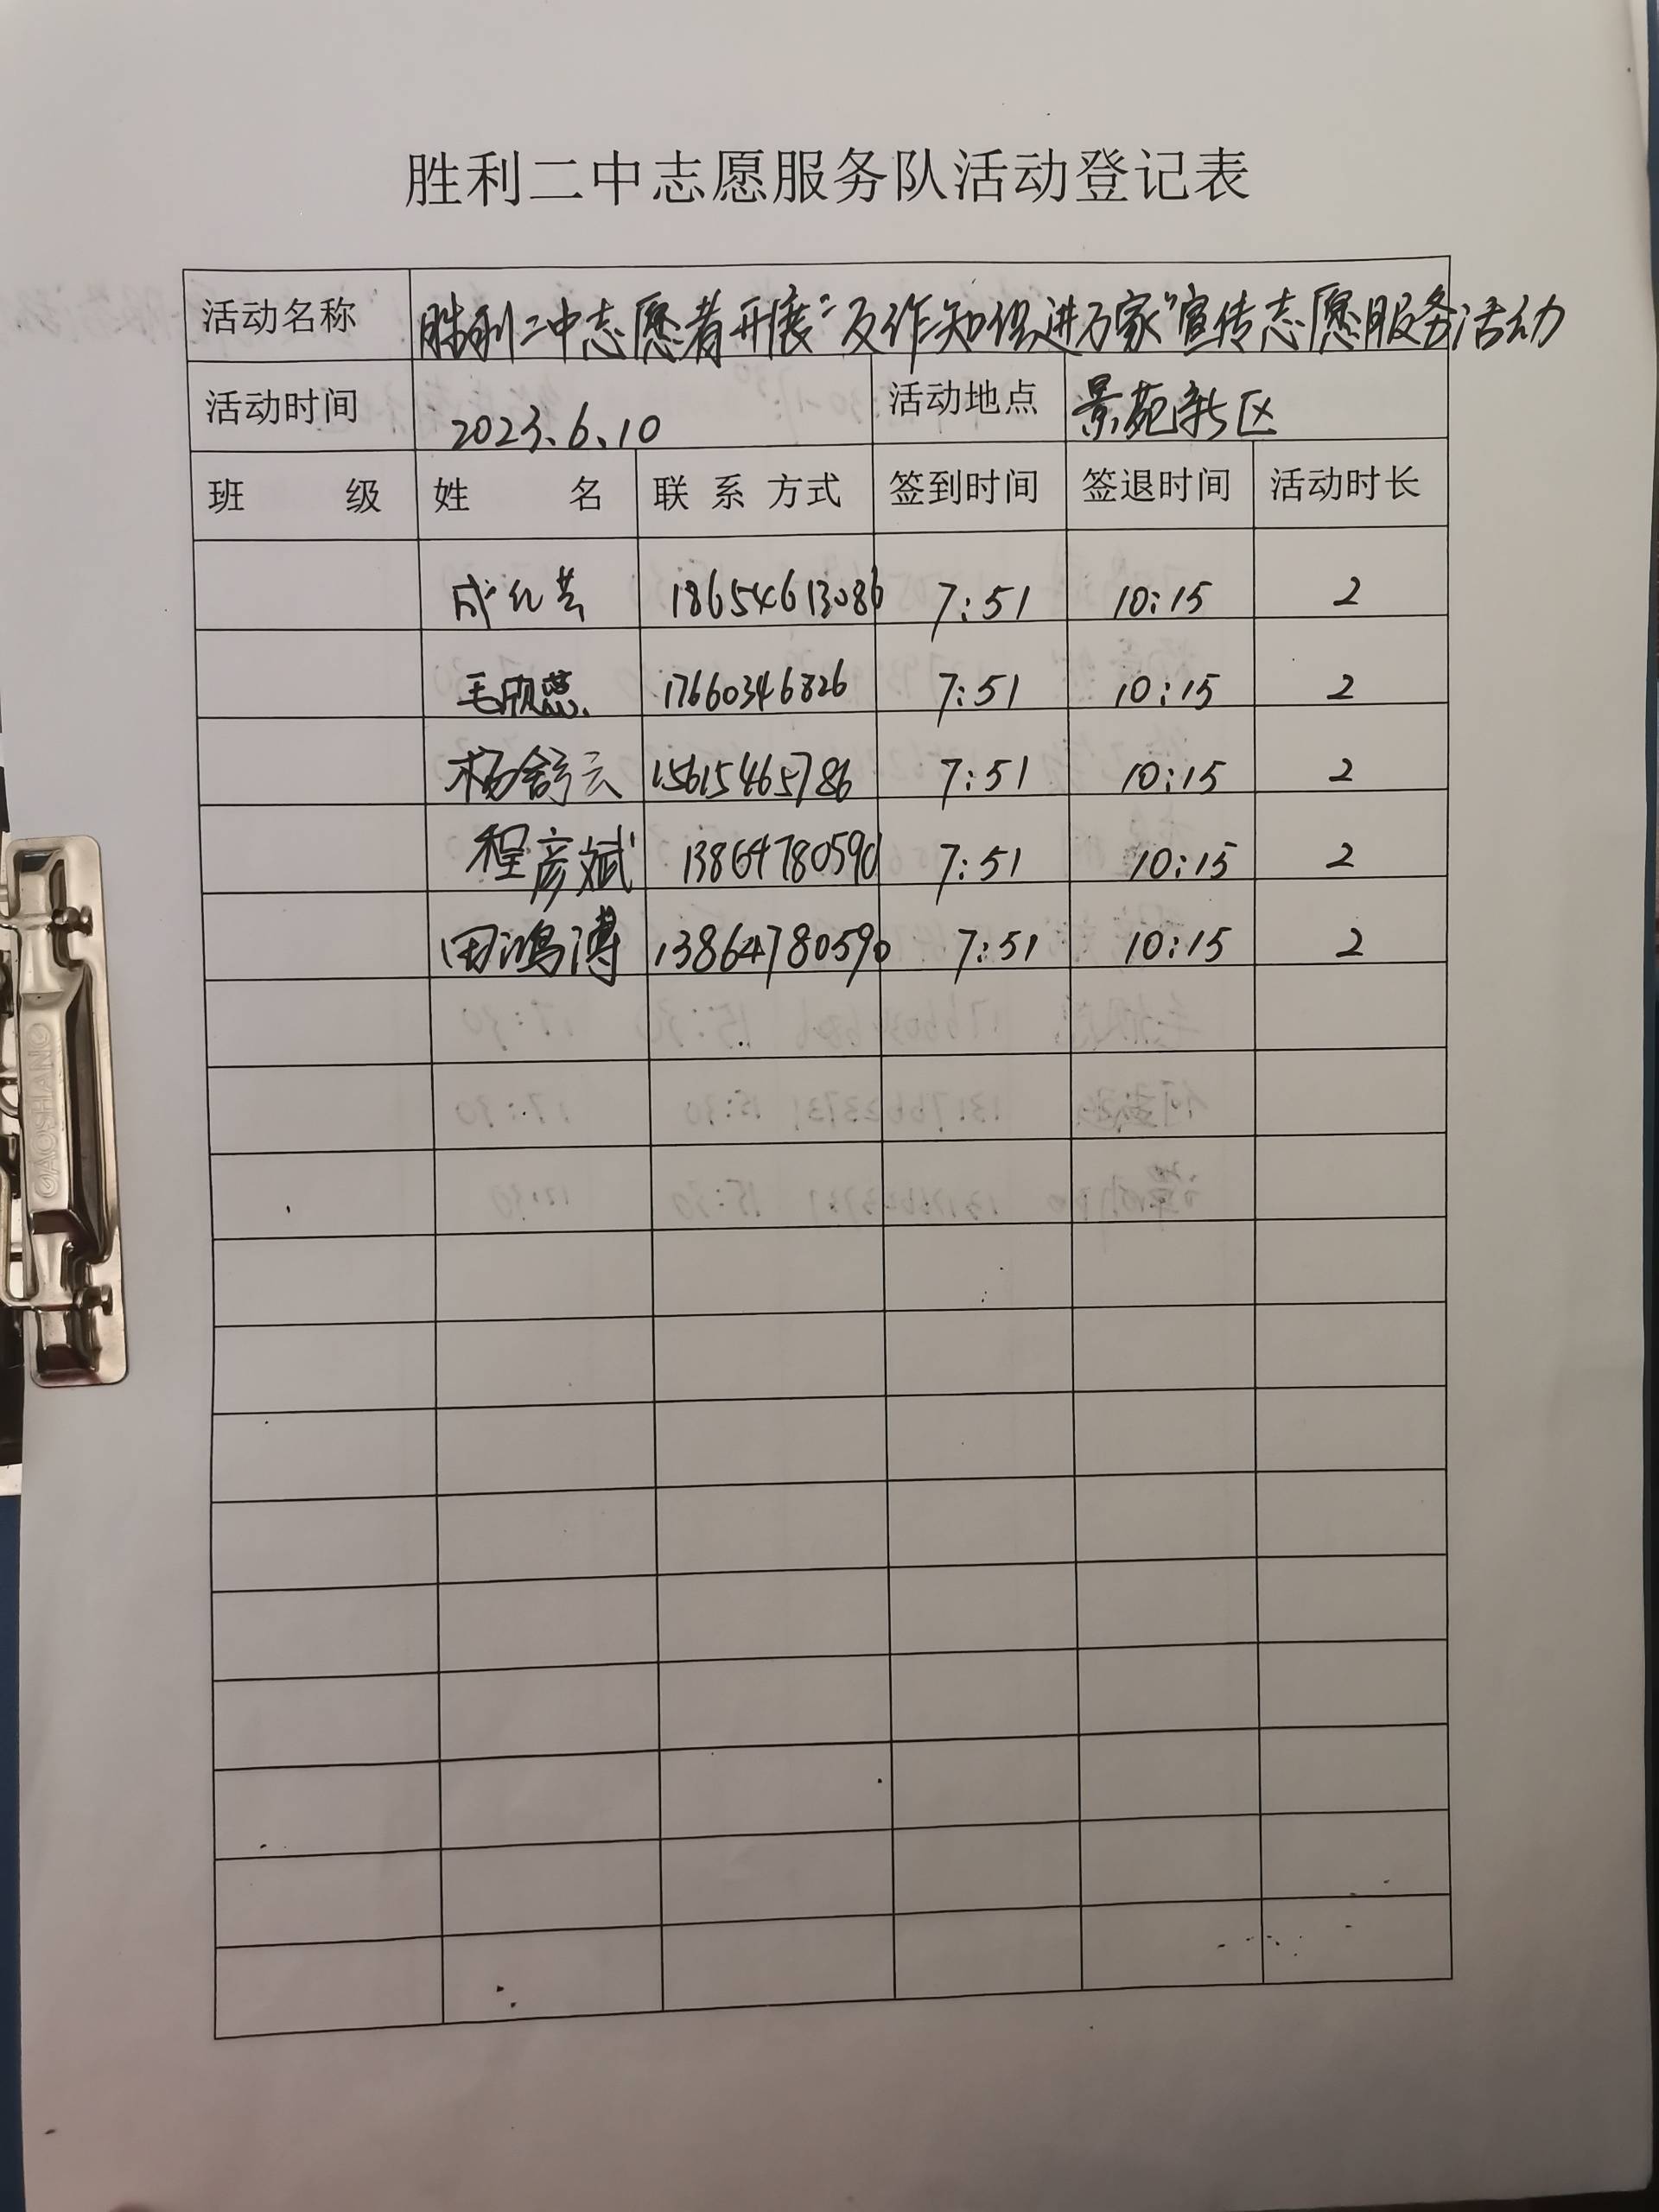 胜利二中志愿服务队活动登记表
活动名称 胜利二中志愿者开展"反诈知识进万家"宣传志愿服务活动
活动时间 2023.6.10 活动地点 景苑新区
班 级 姓 名 联系方式 签到时间 签退时间 活动时长
18654613086 7:51 10:15 2
毛欣蕊 17660346826 7:51 10:15 2
杨舒云 15615465786 7:51 10:15 2
程彦斌 13864780590 7:51 10:15 2
田鸿溥 13864780590 7:51 10:15 2
GAOSHANG